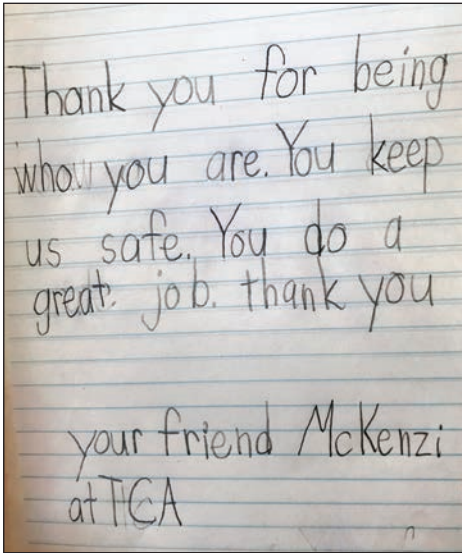 Thank you for being
who you are. You keep
us safe. You do a
great. job. thank you
your friend McKenzi
at TCA